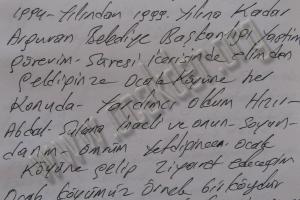 1994-Yılından 1999. Yılına Kadar
Arguvan Belediye Başkanlığı yaptım
görevim-Süresi içerisinde elimden
geldiğince Ocak Köyüne her
Konuda-Yardımcı oldum Hızır-
Abdal-Sultana inaclı ve onun-Soyun-
danım-ömrüm yettiğince ocak
Köyüne gelip ziyaret edeceğim
Ocak Köyümüz Örnek bir köydür